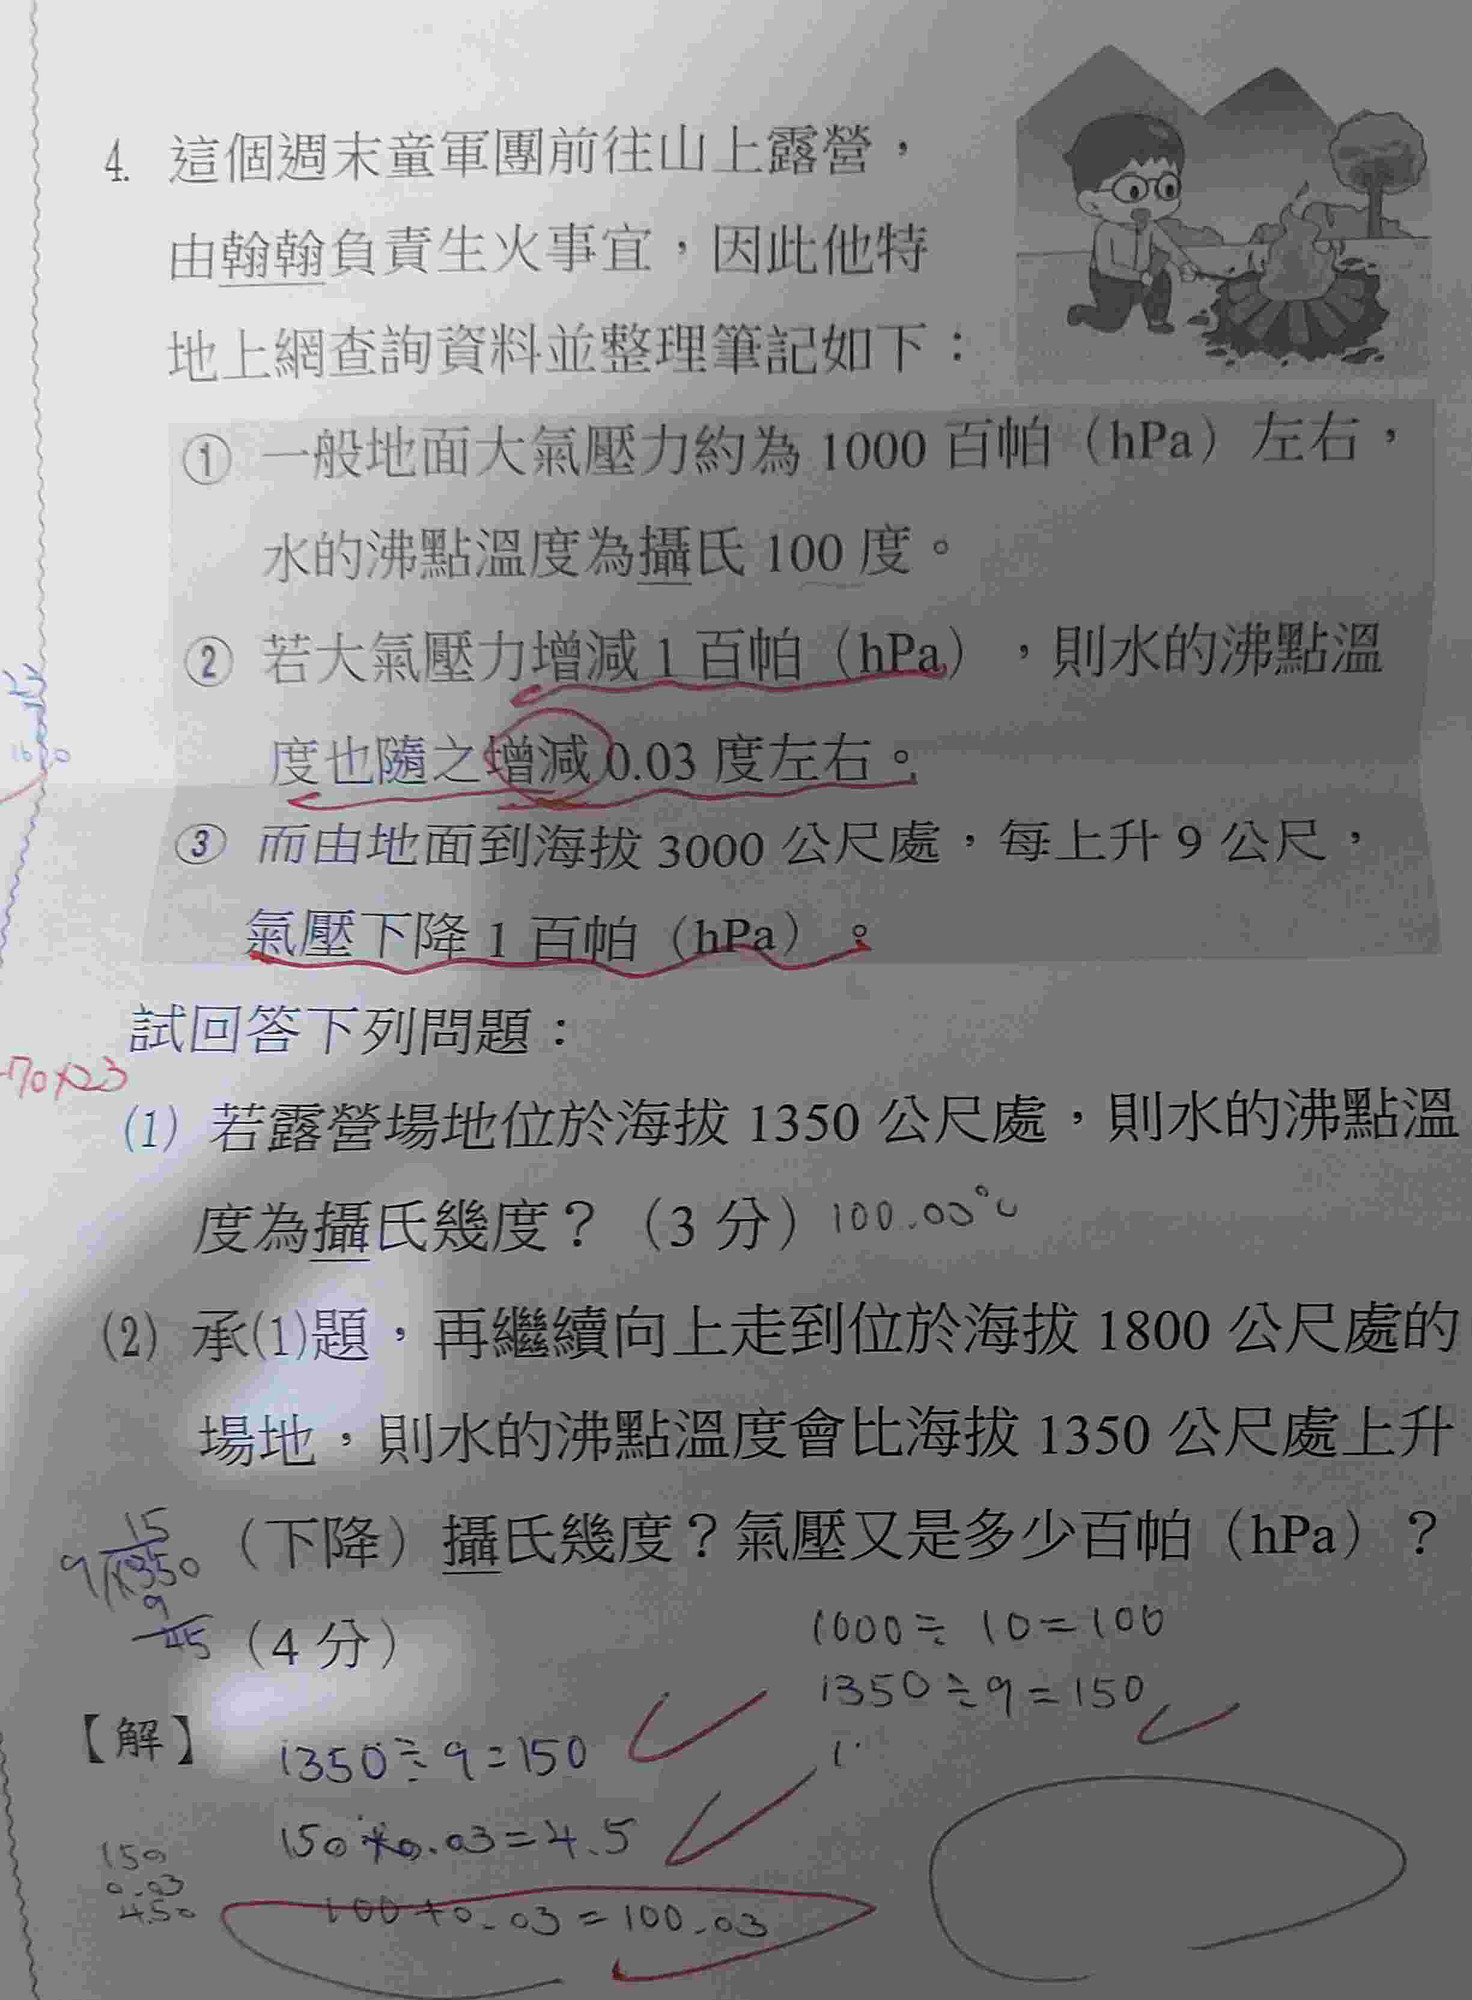 4. 這個週末童軍團前往山上露營，
由翰翰負責生火事宜，因此他特
地上網查詢資料並整理筆記如下：
① 一般地面大氣壓力約為 1000 百帕（hPa）左右，
水的沸點溫度為攝氏 100 度。
② 若大氣壓力增減 1 百帕（hPa），則水的沸點溫
度也隨之增減 0.03 度左右。
③ 而由地面到海拔 3000 公尺處，每上升 9 公尺，
氣壓下降 1 百帕（hPa）。
試回答下列問題：
70×23
(1) 若露營場地位於海拔 1350 公尺處，則水的沸點溫
度為攝氏幾度？（3 分）100.03°C
(2) 承(1)題，再繼續向上走到位於海拔 1800 公尺處的
場地，則水的沸點溫度會比海拔 1350 公尺處上升
（下降）攝氏幾度？氣壓又是多少百帕（hPa）？
（4 分）
15
9 1350
9
45
1000÷10=100
1350÷9=150
【解】
1350÷9=150
150×0.03=4.5
100+0.03=100.03
150
0.03
4.50